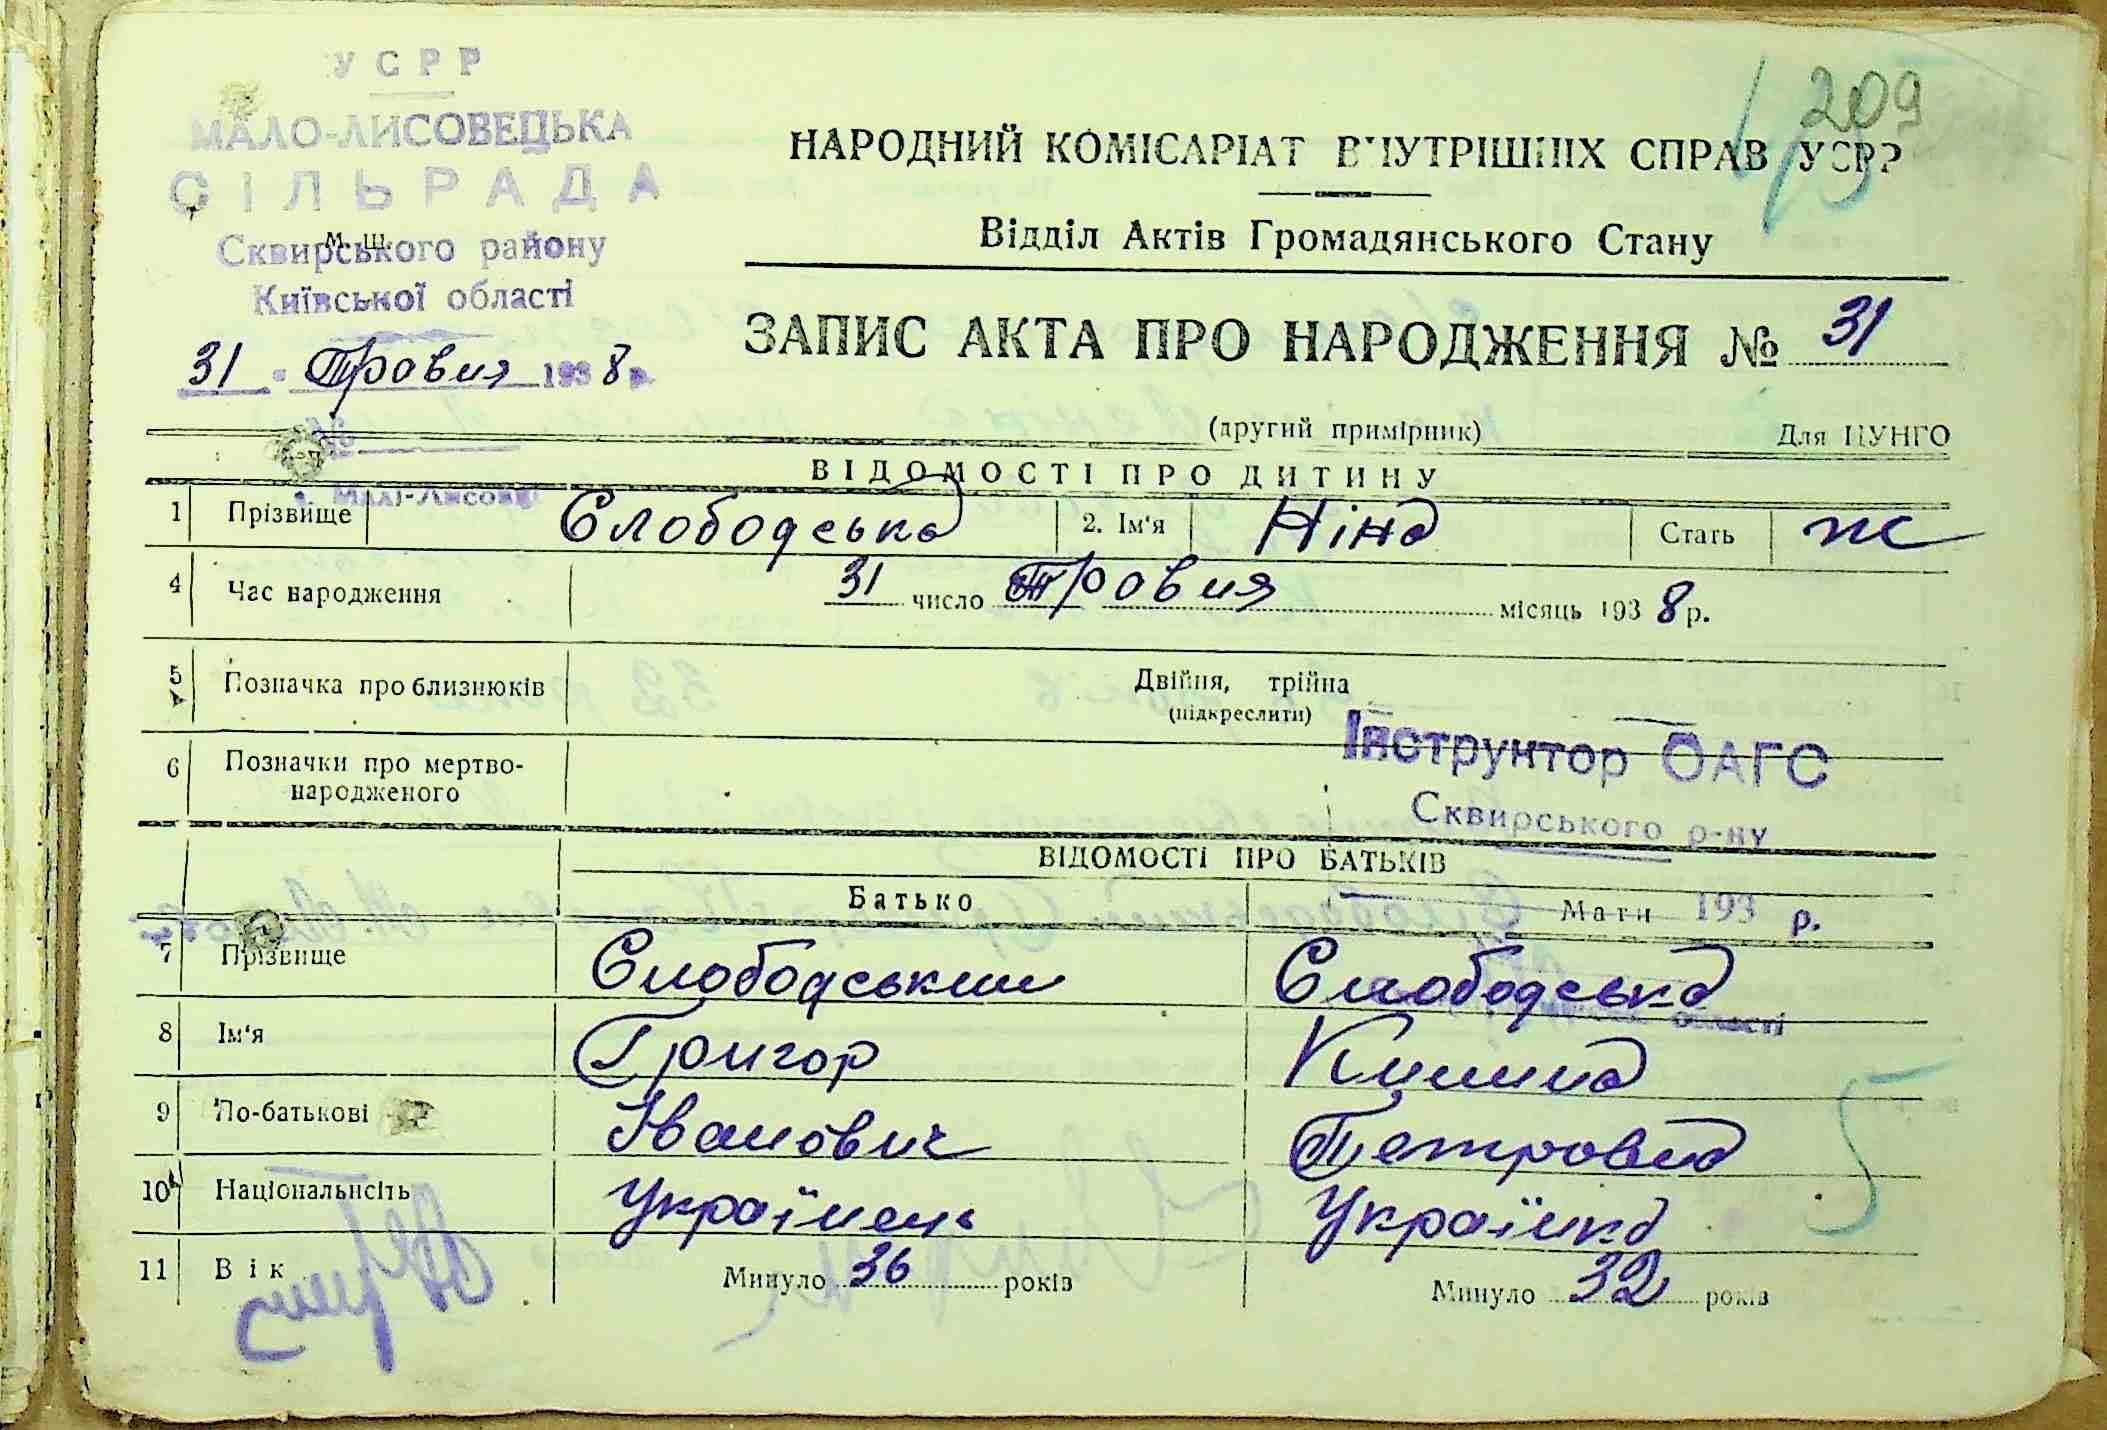 УСРР
МАЛО-ЛИСОВЕЦЬКА
СІЛЬРАДА
М. Ш.
Сквирського району
Київської області
31 Травня 1938 р.
209
НАРОДНИЙ КОМІСАРІАТ ВНУТРІШНІХ СПРАВ УСРР
Відділ Актів Громадянського Стану
ЗАПИС АКТА ПРО НАРОДЖЕННЯ № 31
(другий примірник) Для ЦУНГО
ВІДОМОСТІ ПРО ДИТИНУ
с. Малі-Лисовці
1 Прізвище Слободська 2. Ім'я Ніна Стать ж
4 Час народження 31 число Травня місяць 1938 р.
5 Позначка про близнюків Двійня, трійна
(підкреслити)
6 Позначки про мертво-
народженого
Інструктор ОАГС
Сквирського р-ну
193 р.
ВІДОМОСТІ ПРО БАТЬКІВ
Батько Мати
7 Прізвище Слободський Слободська
області
8 Ім'я Григор Килина
9 По-батькові Іванович Петровна
10 Національнсіть Українець Українка
11 Вік Минуло 36 років Минуло 32 років
5